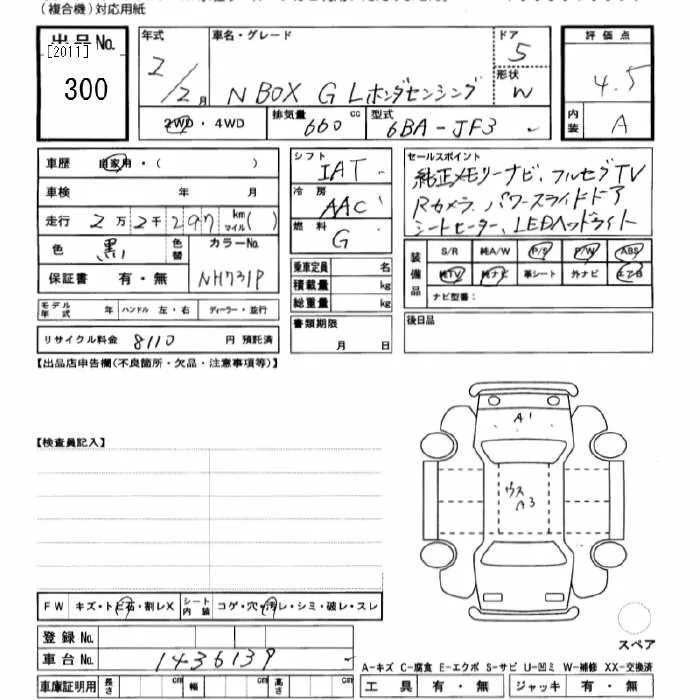 (複合機)対応用紙
出品No.
[2011]
300
年式
2/2月
車名・グレード
N BOX G Lホンダセンシング
ドア
5
形状
W
評価点
4.5
内装
A
2WD・4WD
排気量 660 cc
型式 6BA-JF3
車歴 自家用・( )
車検 年 月
走行 2万2千297 km マイル( )
色 黒 色替
カラーNo.
NH731P
保証書 有・無
モデル年式 年 ハンドル 左・右 ディーラー・並行
リサイクル料金 8110 円 預託済
シフト
IAT
冷房
AAC
燃料
G
乗車定員 名
積載量 kg
総重量 kg
書類期限
月 日
セールスポイント
純正メモリーナビ、フルセグTV
Rカメラ、パワースライドドア
シートヒーター、LEDヘッドライト
装備品
S/R 純A/W P/S P/W ABS
純TV 純ナビ 革シート 外ナビ エアB
ナビ型番:
後日品
【出品店申告欄(不良箇所・欠品・注意事項等)】
【検査員記入】
A1
ウス
A3
FW キズ・トビ石・割レX
シート内装 コゲ・穴・汚レ・シミ・破レ・スレ
登録No.
車台No. 1436139
車庫証明用 長さ cm 幅 cm 高さ cm
スペア
A-キズ C-腐食 E-エクボ S-サビ U-凹ミ W-補修 XX-交換済
工具 有・無 ジャッキ 有・無